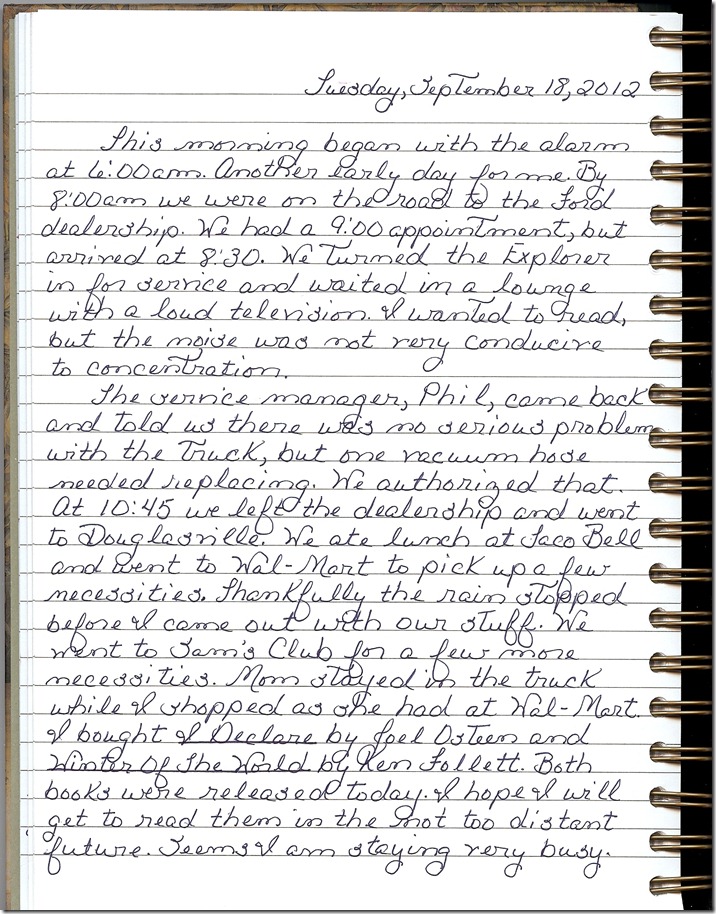 Tuesday, September 18, 2012
This morning began with the alarm
at 6:00am. Another early day for me. By
8:00am we were on the road to the Ford
dealership. We had a 9:00 appointment, but
arrived at 8:30. We turned the Explorer
in for service and waited in a lounge
with a loud television. I wanted to read,
but the noise was not very conducive
to concentration.
The service manager, Phil, came back
and told us there was no serious problem
with the truck, but one vacuum hose
needed replacing. We authorized that.
At 10:45 we left the dealership and went
to Douglasville. We ate lunch at Taco Bell
and went to Wal-Mart to pick up a few
necessities. Thankfully the rain stopped
before I came out with our stuff. We
went to Sam's Club for a few more
necessities. Mom stayed in the truck
while I shopped as she had at Wal-Mart.
I bought I Declare by Joel Osteen and
Winter Of The World by Ken Follett. Both
books were released today. I hope I will
get to read them in the not too distant
future. Seems I am staying very busy.